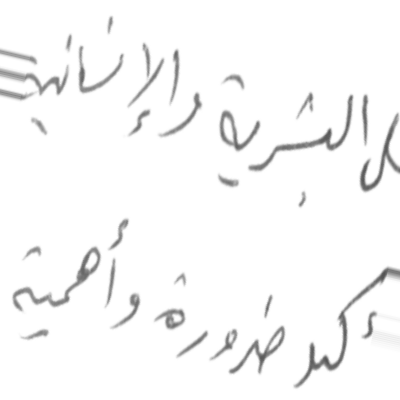 البشرية والإنسانية
ضرورة وأهمية